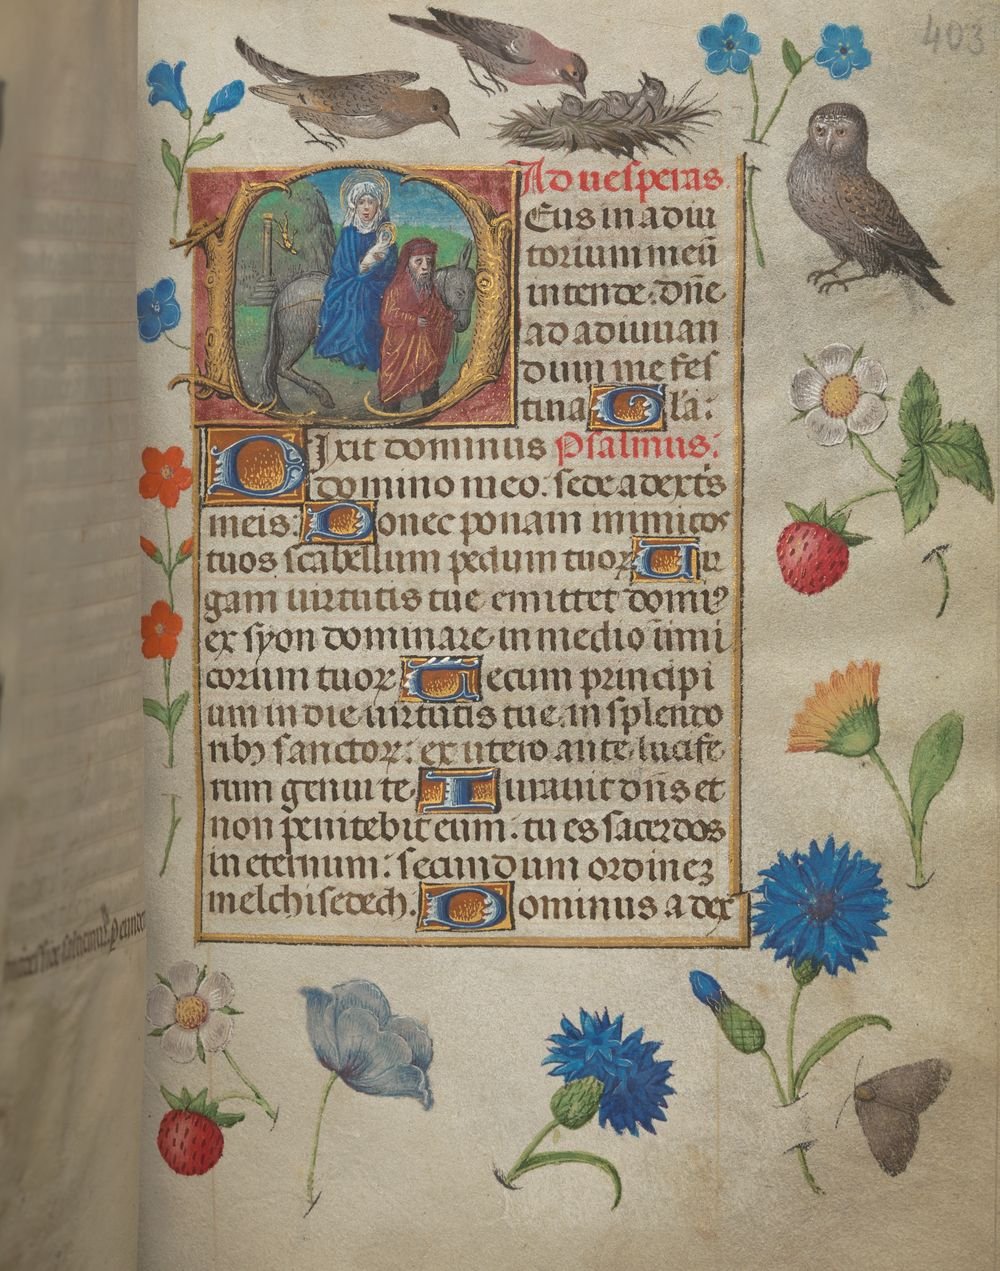 403
Ad uesperas.
Eus in adiu
torium meū
intende. dñe
ad adiuuan
dum me fes
tina Gl'a:
Dixit dominus Psalmus.
domino meo. sede a dextˢ
meis: Donec ponam inimicos
tuos scabellum pedum tuoꝝ Uir
gam uirtutis tue emittet domiꝰ
ex syon dominare in medio inimi
corum tuoꝝ Tecum principi
um in die uirtutis tue in splendo
ribꝫ sanctoꝝ: ex utero ante lucife
rum genui te Iurauit dñs et
non penitebit eum. tu es sacerdos
in eternum: secundum ordineꝫ
melchisedech. Dominus a dex